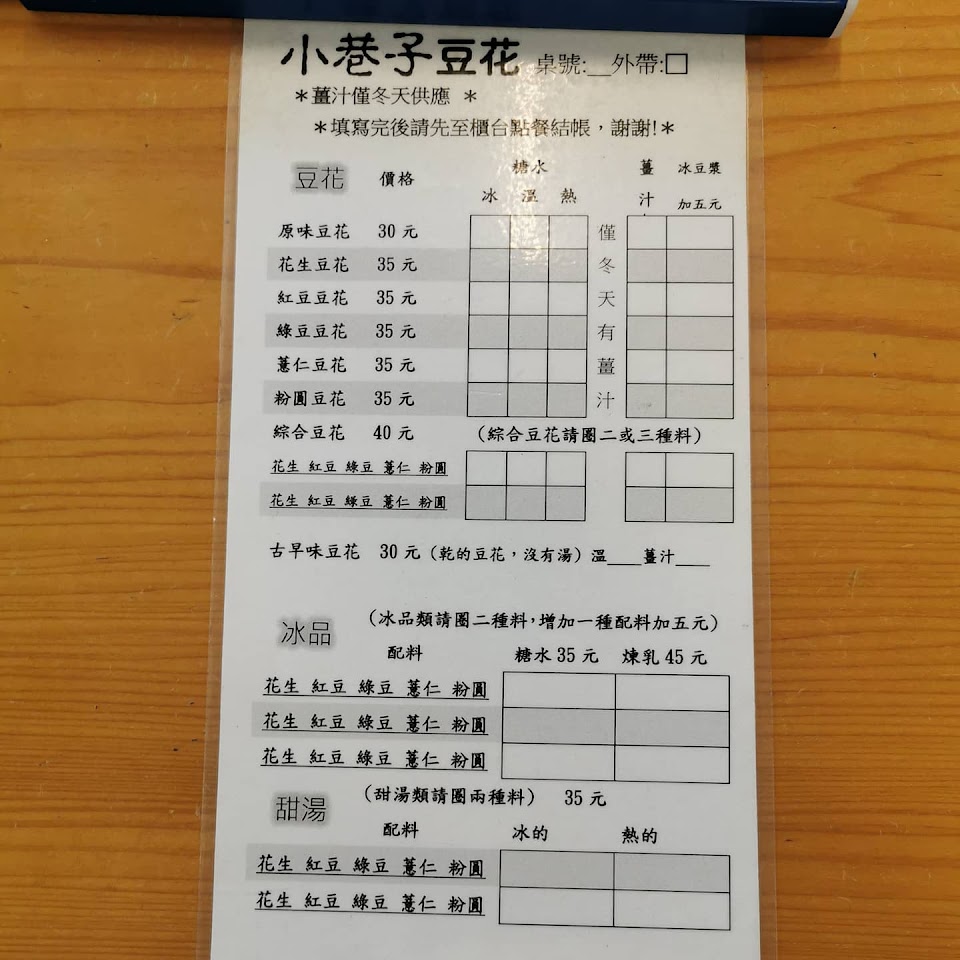 小巷子豆花 桌號:__外帶:□
＊薑汁僅冬天供應 ＊
＊填寫完後請先至櫃台點餐結帳，謝謝!＊
豆花 價格 糖水 薑汁 冰豆漿
冰 溫 熱 加五元
原味豆花 30 元
花生豆花 35 元
紅豆豆花 35 元
綠豆豆花 35 元
薏仁豆花 35 元
粉圓豆花 35 元
僅冬天有薑汁
綜合豆花 40 元 (綜合豆花請圈二或三種料)
花生 紅豆 綠豆 薏仁 粉圓
花生 紅豆 綠豆 薏仁 粉圓
古早味豆花 30 元 (乾的豆花，沒有湯) 溫____薑汁____
冰品 (冰品類請圈二種料，增加一種配料加五元)
配料 糖水 35 元 煉乳 45 元
花生 紅豆 綠豆 薏仁 粉圓
花生 紅豆 綠豆 薏仁 粉圓
花生 紅豆 綠豆 薏仁 粉圓
甜湯 (甜湯類請圈兩種料) 35 元
配料 冰的 熱的
花生 紅豆 綠豆 薏仁 粉圓
花生 紅豆 綠豆 薏仁 粉圓